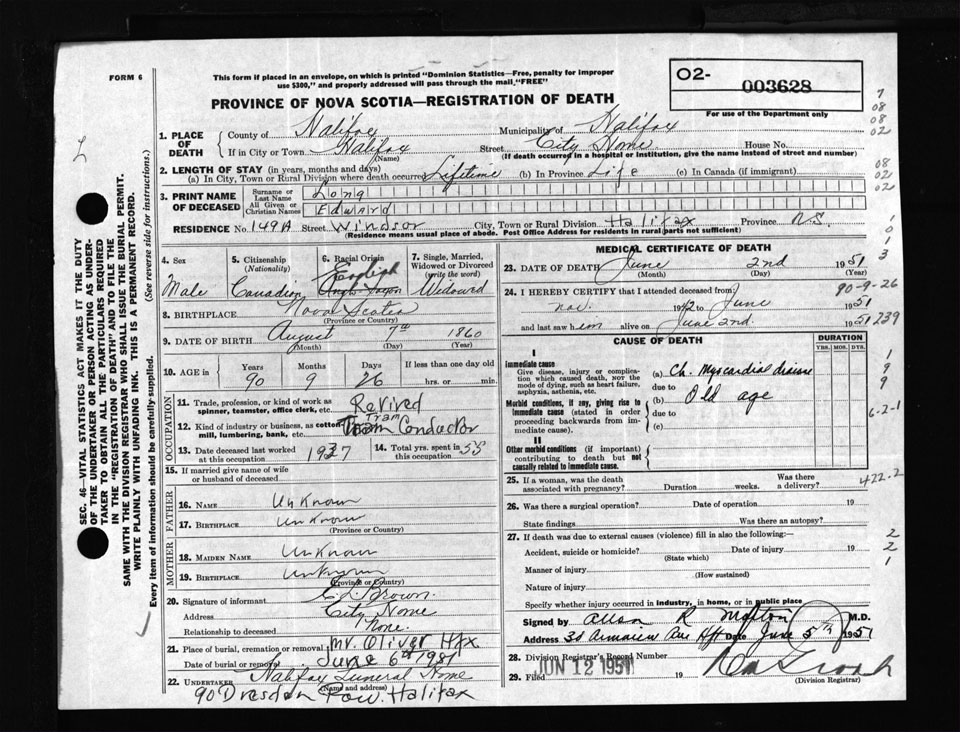 FORM 6
This form if placed in an envelope, on which is printed "Dominion Statistics—Free, penalty for improper
use $300," and properly addressed will pass through the mail "FREE"
PROVINCE OF NOVA SCOTIA—REGISTRATION OF DEATH
O2- 003628
For use of the Department only
7
08
08
02
1. PLACE OF DEATH
County of Halifax Municipality of Halifax
If in City or Town Halifax Street City Home House No.
(Name) (If death occurred in a hospital or institution, give the name instead of street and number)
2. LENGTH OF STAY (in years, months and days)
(a) In City, Town or Rural Division where death occurred Lifetime (b) In Province Life (c) In Canada (if immigrant)
08
02
02
3. PRINT NAME OF DECEASED
Surname or Last Name Long
All Given or Christian Names Edward
RESIDENCE No. 149A Street Windsor City, Town or Rural Division Halifax Province N.S.
(Residence means usual place of abode. Post Office Address for residents in rural parts not sufficient)
1
0
1
3
4. Sex
Male
5. Citizenship
(Nationality)
Canadian
6. Racial Origin
English
Anglo Saxon
7. Single, Married,
Widowed or Divorced
(write the word)
Widowed
8. BIRTHPLACE Nova Scotia
(Province or Country)
9. DATE OF BIRTH August 7th 1860
(Month) (Day) (Year)
10. AGE in Years Months Days If less than one day old
90 9 26 hrs. or min.
OCCUPATION
11. Trade, profession or kind of work as
spinner, teamster, office clerk, etc. Retired
12. Kind of industry or business, as cotton
mill, lumbering, bank, etc. Tram Conductor
13. Date deceased last worked
at this occupation 1927
14. Total yrs. spent in
this occupation 55
15. If married give name of wife
or husband of deceased
FATHER
16. NAME Unknown
17. BIRTHPLACE Unknown
(Province or Country)
MOTHER
18. MAIDEN NAME Unknown
19. BIRTHPLACE Unknown
(Province or Country)
20. Signature of informant Brown
Address City Home
Relationship to deceased None.
21. Place of burial, cremation or removal Mt. Olivet Hfx
Date of burial or removal June 6th 1951
22. UNDERTAKER Halifax Funeral Home
(Name and address)
90 Dresden Row. Halifax
MEDICAL CERTIFICATE OF DEATH
23. DATE OF DEATH June 2nd 1951
(Month) (Day) (Year)
24. I HEREBY CERTIFY that I attended deceased from
90-9-26
Nov. 1942 to June 1951
and last saw him alive on June 2nd 1951
239
CAUSE OF DEATH
DURATION
YRS. MOS. DYS.
I
Immediate cause
Give disease, injury or complication which caused death, NOT the mode of dying, such as heart failure, asphyxia, asthenia, etc.
(a) Ch. Myocardial disease
due to
Morbid conditions, if any, giving rise to immediate cause (stated in order proceeding backwards from immediate cause).
(b) Old age
due to
(c)
II
Other morbid conditions (if important) contributing to death but not causally related to immediate cause.
1
9
9
6-2-1
25. If a woman, was the death
associated with pregnancy? Duration weeks. Was there a delivery?
422-2
26. Was there a surgical operation? Date of operation 19
State findings Was there an autopsy?
27. If death was due to external causes (violence) fill in also the following:—
Accident, suicide or homicide? Date of injury 19
(State which)
Manner of injury
(How sustained)
Nature of injury
Specify whether injury occurred in industry, in home, or in public place
2
2
1
Signed by R M.D.
Address Hfx Date June 5th 1951
28. Division Registrar's Record Number
29. Filed JUN 12 1951 19
(Division Registrar)
SEC. 46—VITAL STATISTICS ACT MAKES IT THE DUTY
OF THE UNDERTAKER OR PERSON ACTING AS UNDER-
TAKER TO OBTAIN ALL THE PARTICULARS REQUIRED
IN THE "REGISTRATION OF DEATH" AND TO FILE THE
SAME WITH THE DIVISION REGISTRAR WHO SHALL ISSUE THE BURIAL PERMIT.
WRITE PLAINLY WITH UNFADING INK. THIS IS A PERMANENT RECORD.
Every item of information should be carefully supplied. (See reverse side for instructions.)